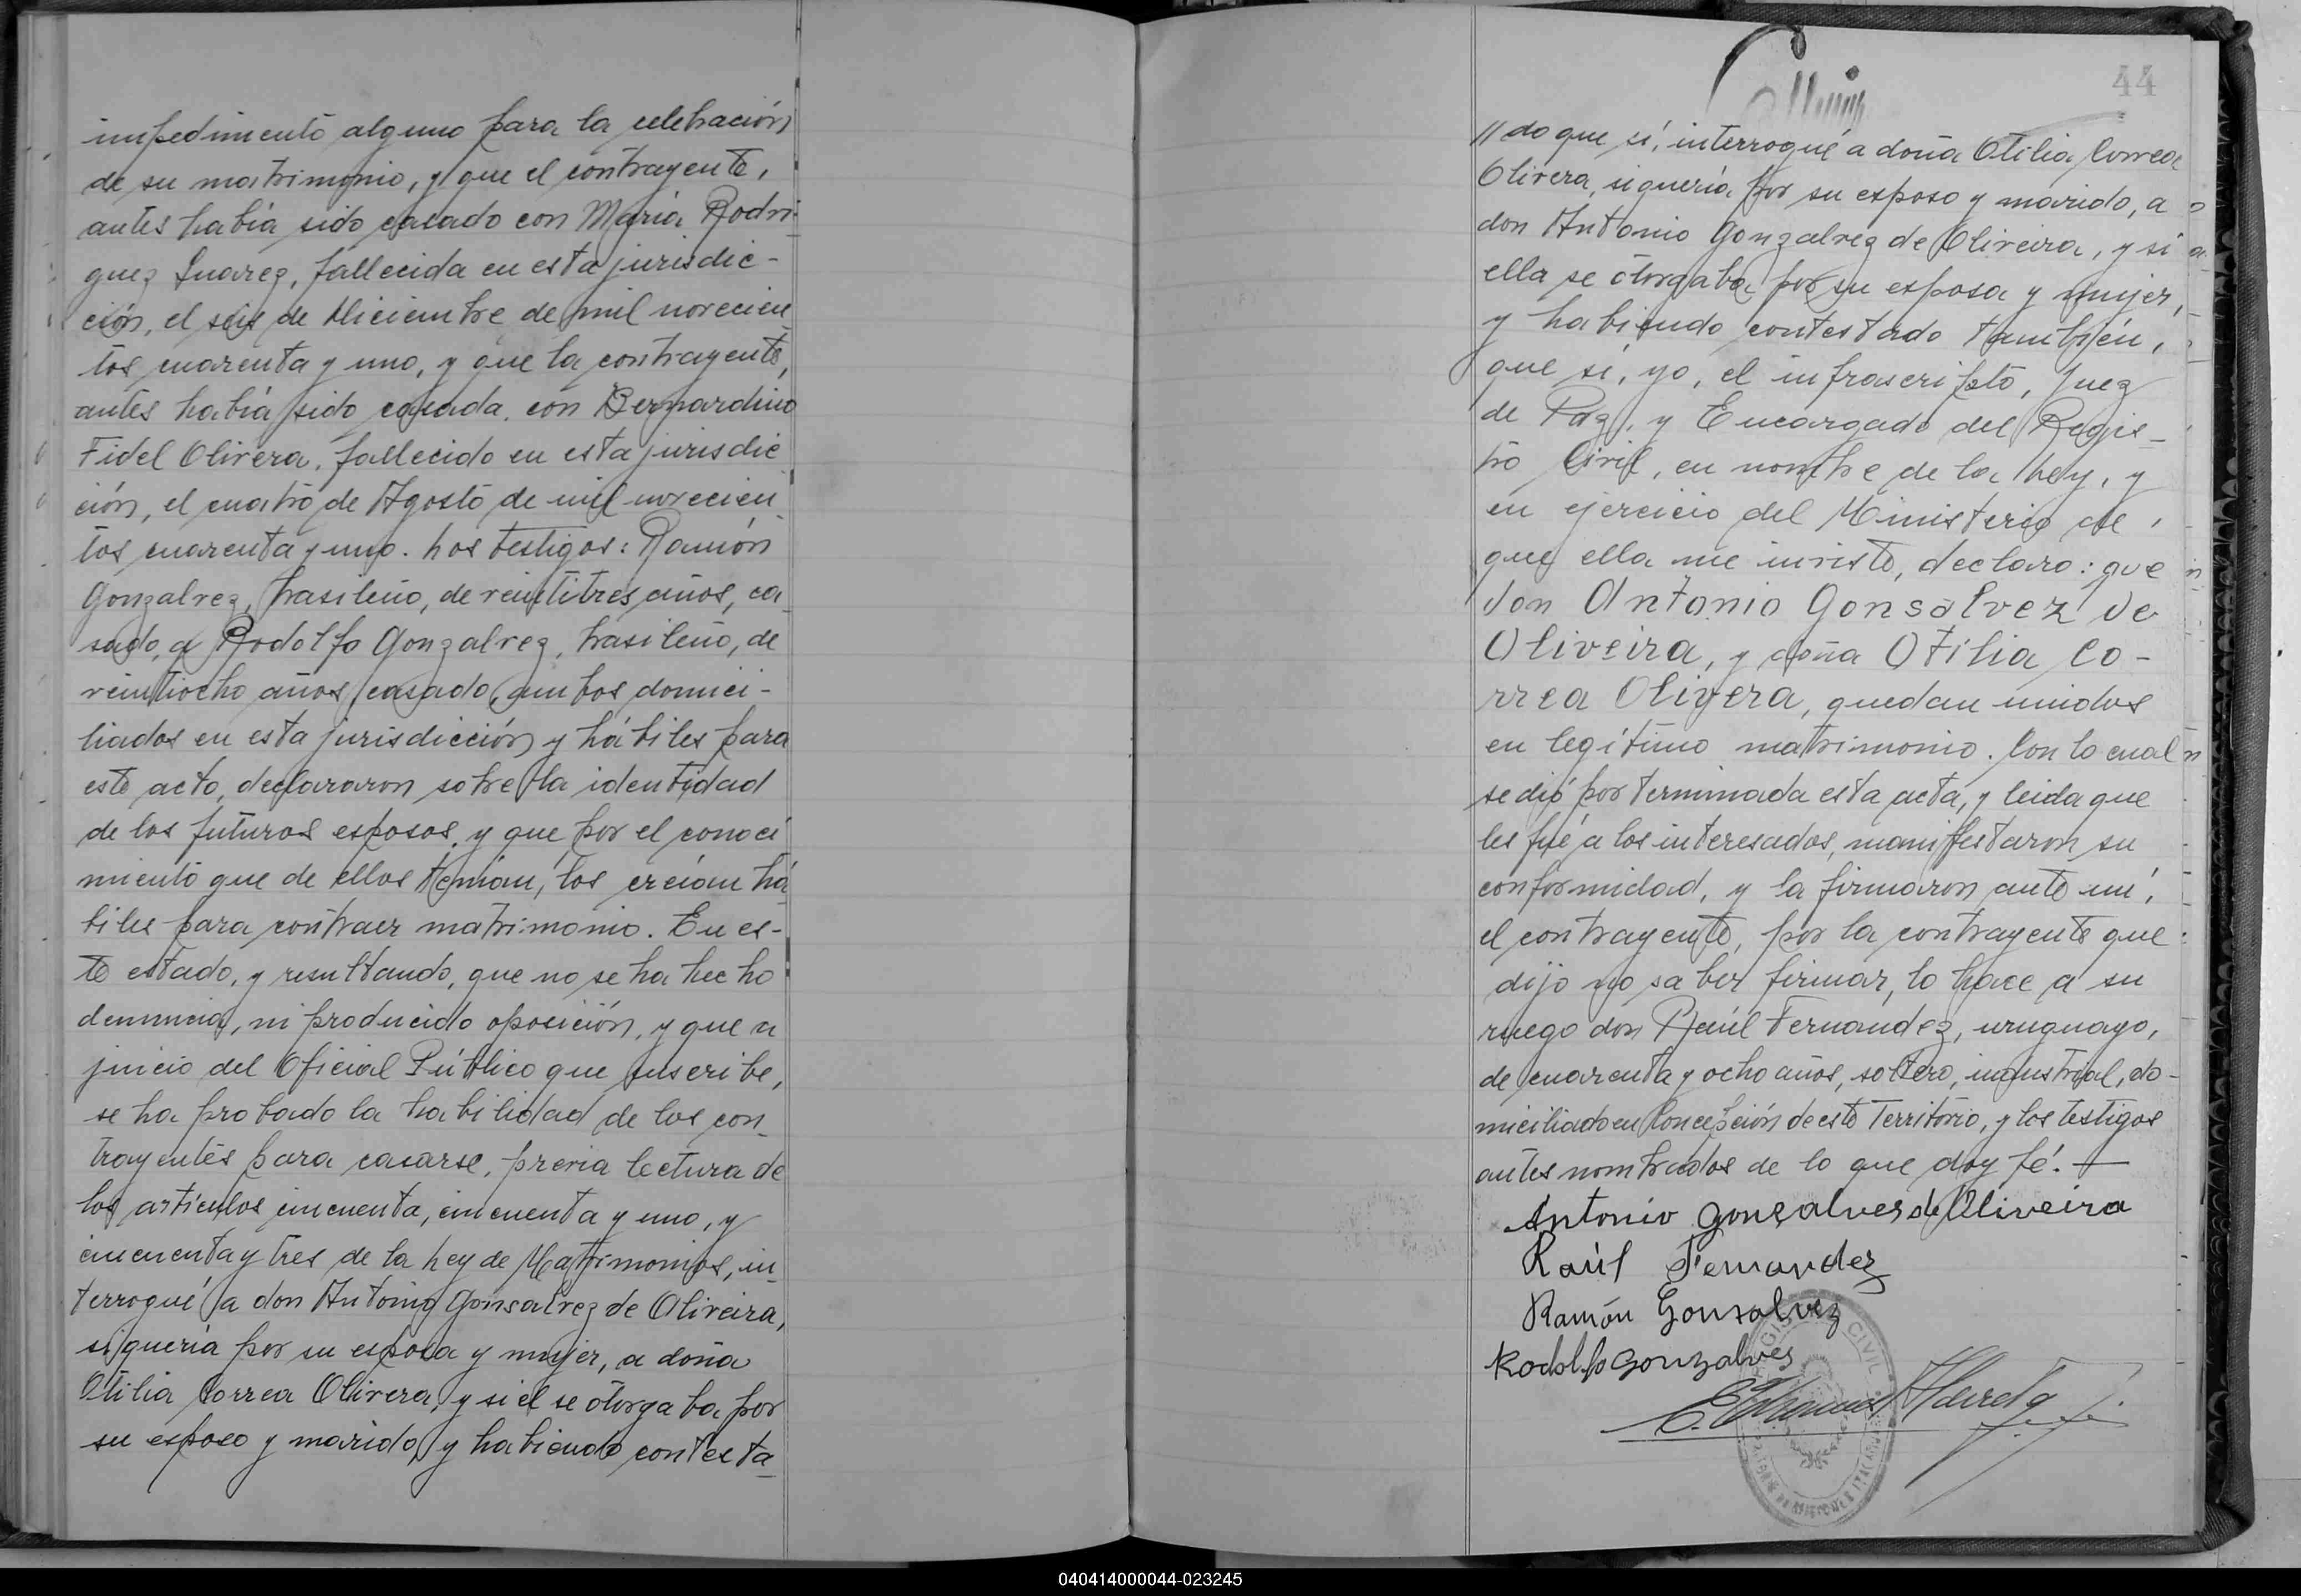 impedimento alguno para la celebración
de su matrimonio, y que el contrayente,
antes había sido casado con María Rodri-
guez Suarez, fallecida en esta jurisdic-
ción, el seis de Diciembre de mil novecien-
tos cuarenta y uno, y que la contrayente,
antes había sido casada con Bernardino
Fidel Olivera, fallecido en esta jurisdic
ción, el cuatro de Agosto de mil novecien-
tos cuarenta y uno. Los testigos: Ramón
Gonzalvez, brasileño, de veintitres años, ca-
sado, a Rodolfo Gonzalvez, brasileño, de
veintiocho años, casado, ambos domici-
liados en esta jurisdicción y hábiles para
este acto, declararon sobre la identidad
de los futuros esposos, y que por el conoci
miento que de ellos tenían, los creían há
biles para contraer matrimonio. En es-
te estado, y resultando, que no se ha hecho
denuncia, ni producido oposición, y que a
juicio del Oficial Público que suscribe,
se ha probado la habilidad de los con-
trayentes para casarse, previa lectura de
los artículos cincuenta, cincuenta y uno, y
cincuenta y tres de la Ley de Matrimonios, in-
terrogué a don Antonio Gonsalvez de Oliveira,
si quería por su esposa y mujer, a doña
Otilia Correa Olivera, y si el se otorgaba por
su esposo y marido, y habiendo contesta-
44
//do que sí, interrogué a doña Otilia Correa
Olivera, si quería por su esposo y marido, a
don Antonio Gonzalvez de Oliveira, y si
ella se otorgaba por su esposa y mujer,
y habiendo contestado también,
que sí, yo, el infrascripto, Juez
de Paz, y Encargado del Regis-
tro Civil, en nombre de la Ley, y
en ejercicio del Ministerio de
que ella me inviste, declaro: que
don Antonio Gonsalvez de
Oliveira, y doña Otilia Co-
rrea Olivera, quedan unidos
en legítimo matrimonio. Con lo cual
se dió por terminada esta acta, y leida que
les fué a los interesados, manifestaron su
conformidad, y la firmaron ante mí,
el contrayente, por la contrayente que
dijo no saber firmar, lo hace a su
ruego don Raúl Fernandez, uruguayo,
de cuarenta y ocho años, soltero, industrial, do-
miciliado en Concepción de este Territorio, y los testigos
antes nombrados de lo que doy fé.
Antonio Gonçalves de Oliveira
Raúl Fernandez
Ramón Gonsalvez
Rodolfo Gonzalves
REGISTRO CIVIL
040414000044-023245